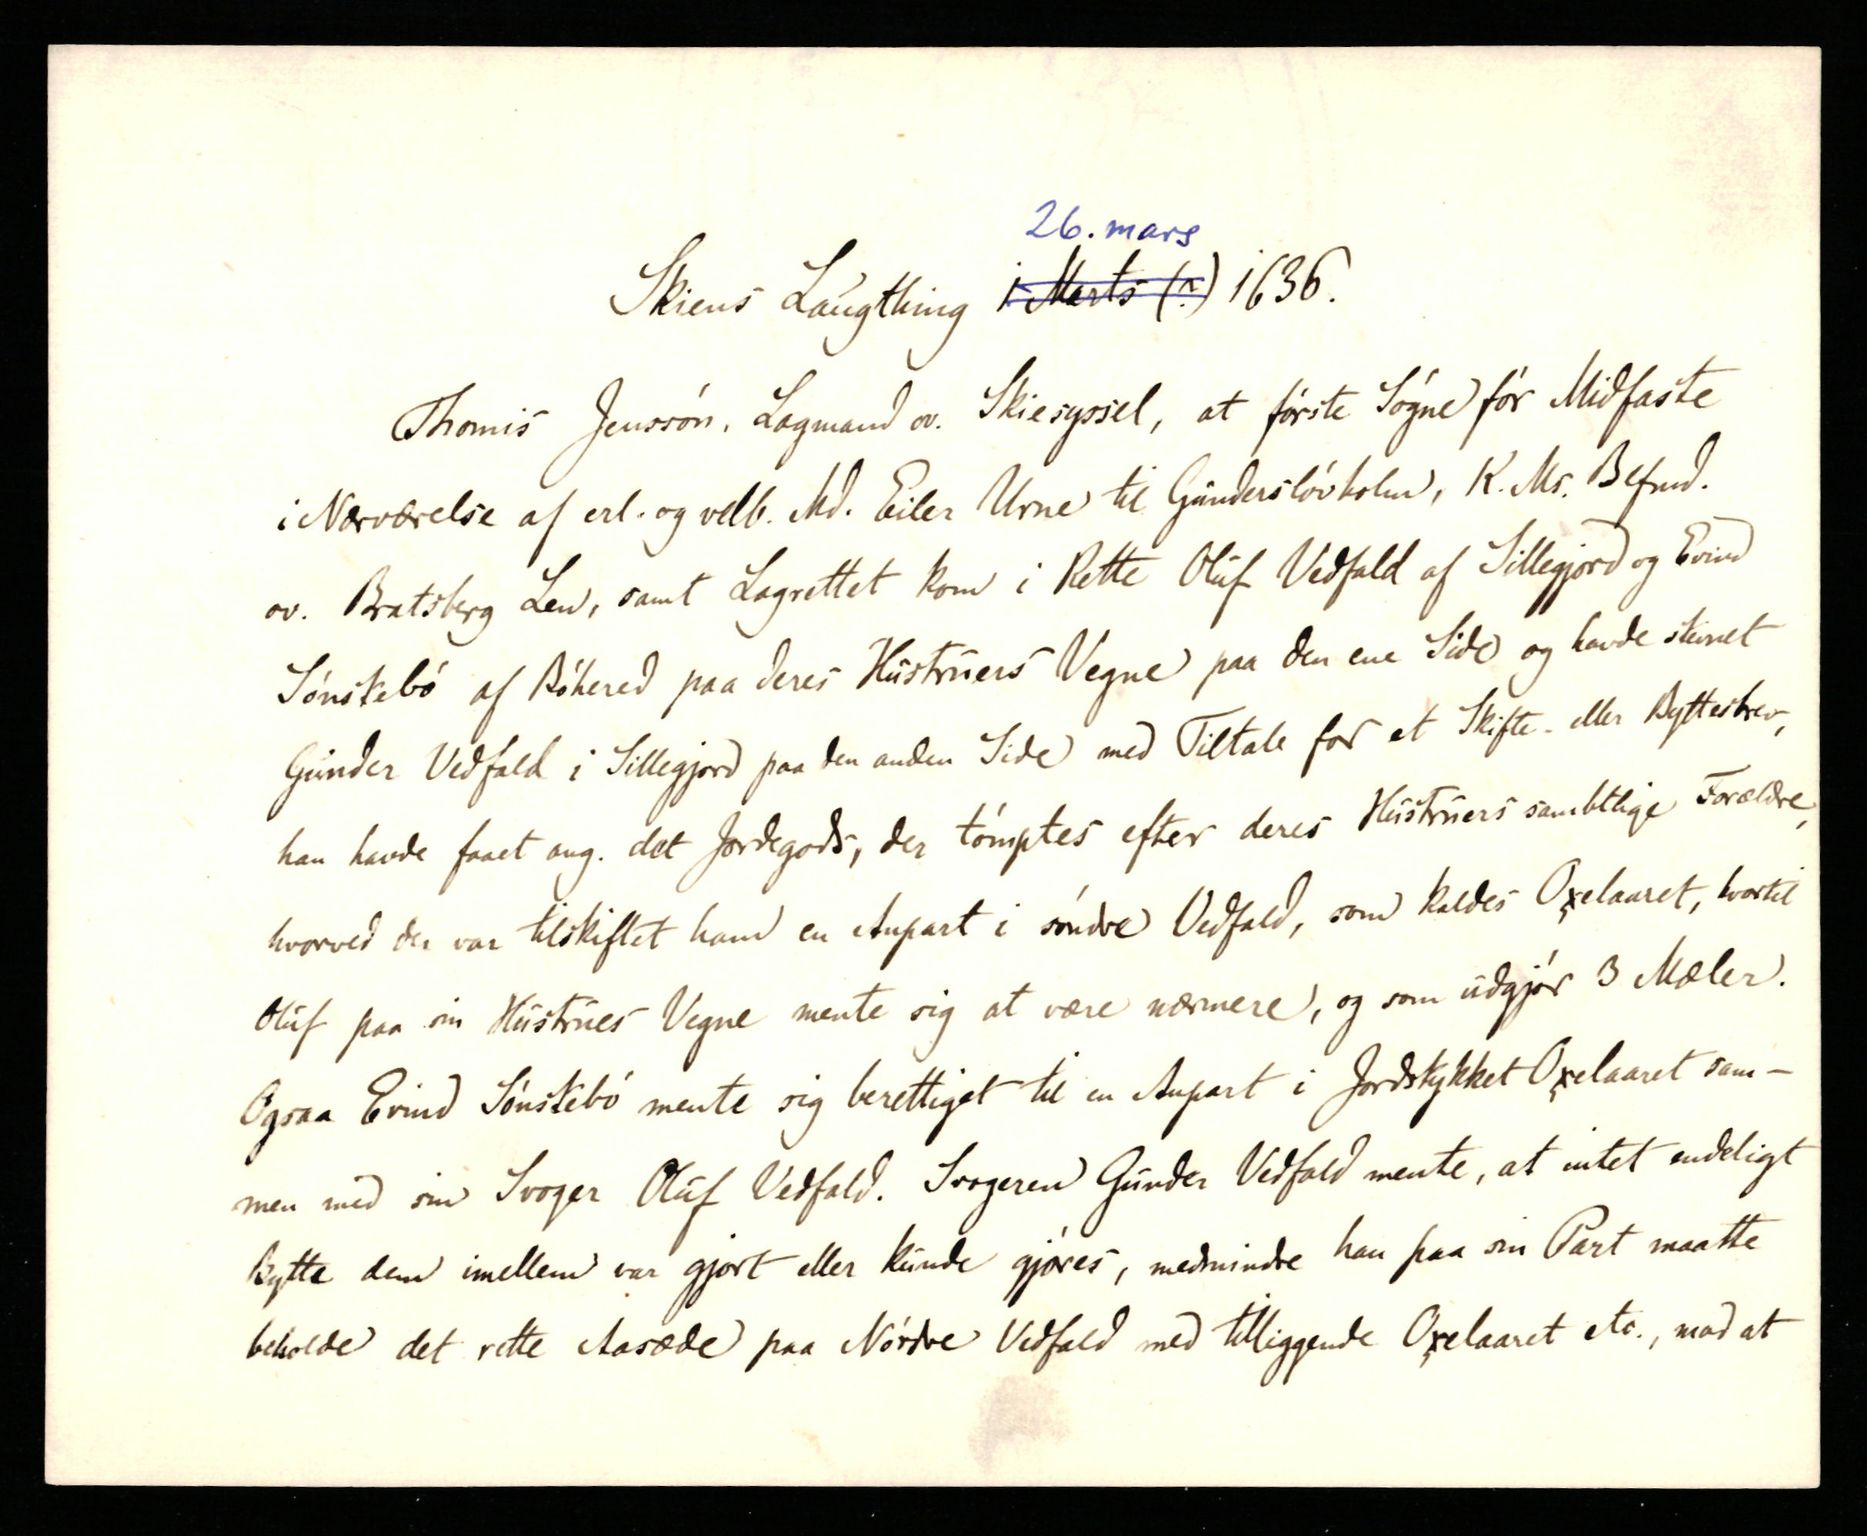 26. mars
Skiens Laugthing i Marts (?) 1636.
Thomis Jenssön, Lagmand ov. Skiesyssel, at förste Sögne för Midfaste
i Nærværelse af erl. og velb. Md. Eiler Urne til Gunderslövholm, K. Ms. Befmd.
ov. Bratsberg Len, samt Lagrettet kom i Rette Oluf Vedfald af Sillegjord og Evind
Sönstebö af Böhered paa deres Hustruers Vegne paa den ene Side og havde stevnet
Gunder Vedfald i Sillegjord paa den anden Side med Tiltale for et Skifte- eller Byttesbrev,
han havde faaet ang. det Jordegods, der tömptes efter deres Hustruers sambtlige Forældre,
hvorved der var tilskiftet ham en Anpart i söndre Vedfald, som kaldes Oxelaaret, hvortil
Oluf paa sin Hustrues Vegne mente sig at være nærmere, og som udgjör 3 Mæler.
Ogsaa Evind Sönstebö mente sig berettiget til en Anpart i Jordstykket Oxelaaret sam-
men med sin Svoger Oluf Vedfald. Svogeren Gunder Vedfald mente, at intet endeligt
Bytte dem imellem var gjort eller kunde gjöres, medmindre han paa sin Part maatte
beholde det rette Aasæde paa Nördre Vedfald med tilliggende Oxelaaret etc., mod at